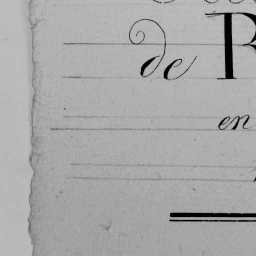 de R
en